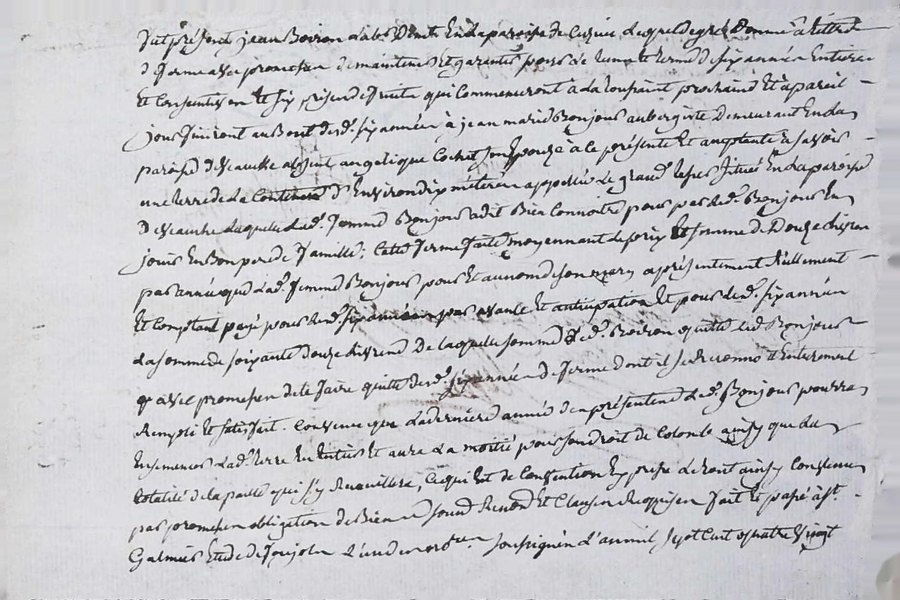 fut présent jean Boiron d'abt Demt En la paroisse de Cuzieu de gré de gré donne à tittre
de ferme avec promesse de maintenir Et garantir pour de tems Et terme de six année Entiere
Et Consentive Et six prise de fruits qui Commenceront a la toussaint prochaine Et à pareil
jour finiront au Bout desd. six année à jean marie Bonjour aubergiste Demeurant En la
paroisse De Veauche absent angelique Cochet son Epouze à ce présente Et acceptante à savoir
une terre de la Contenue D'Environ dix métérée appellée Le grand situé En la paroisse
De Veauche Laquelle lad. femme Bonjour a dit Bien Connoitre pour par led. Bonjour En
jouir En Bon pere de famille; Cette ferme faite moyennant le prix Et somme de Douze
par année que lad. femme Bonjour pour Et au nom de son mary a présentement réellement
Et Comptant payé pour lesd. six année par avance Et anticipation Et pour lesd. six année
la somme de soixante douze De laquelle somme led. Boiron quitte led. Bonjour
avec promesse de le faire quitte desd. six année De ferme dont il se reconnoit Entierement
Remply Et satisfait. Convenu que La derniere année de présente led. Bonjour pourra
Ensemencer lad. terre En Entier Et aura La moitié pour son droit de Colonle ainsy que la
totalité de la paille qui s'y Recueillera, Ce qui Est de Convention Exprise Le tout ainsy Convenu
par promesse obligation de Biens Et Clauses Requises fait Et passé à St.
Galmier Etude de L'un des nores. soussignés L'an mil sept Cent quatre Vingt